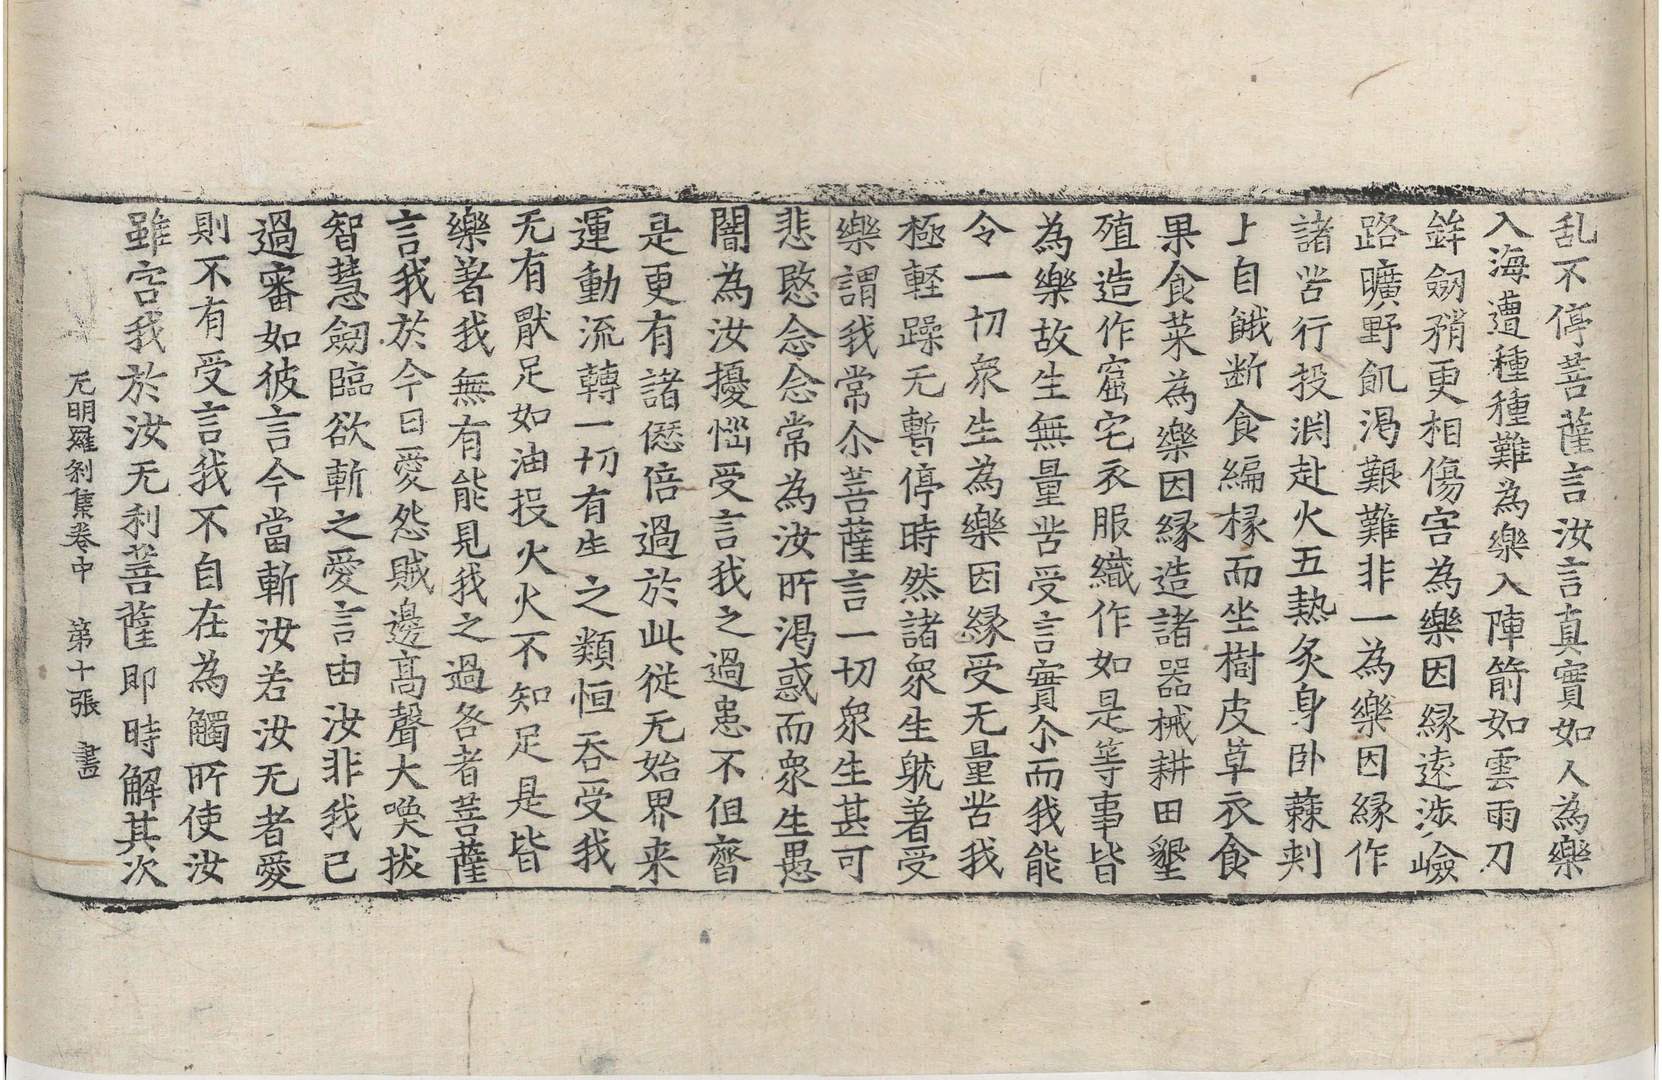 乱不停菩薩言汝言真實如人為樂
入海遭種種難為樂入陣箭如雲雨刀
鉾劒矟更相傷害為樂因縁遠涉嶮
路曠野飢渇艱難非一為樂因縁作
諸苦行投渕赴火五熱炙身卧蕀刾
上自餓断食編椽而坐樹皮草衣食
果食菜為樂因縁造諸器械耕田墾
殖造作窟宅衣服織作如是等事皆
為樂故生無量苦受言實尒而我能
令一切衆生為樂因縁受无量苦我
極軽躁无暫停時然諸衆生躭著受
樂謂我常尒菩薩言一切衆生甚可
悲愍念念常為汝所渇惑而衆生愚
闇為汝擾惱受言我之過患不但齊
是更有諸㥶倍過於此從无始界来
運動流轉一切有生之類恒吞受我
无有猒足如油投火火不知足是皆
樂著我無有能見我之過咎者菩薩
言我於今日愛怨賊邊髙聲大喚拔
智慧劒臨欲斬之愛言由汝非我己
過審如彼言今當斬汝若汝无者愛
則不有受言我不自在為觸所使汝
雖害我於汝无利菩薩即時解其次
无明羅刹集卷中　第十張　畫